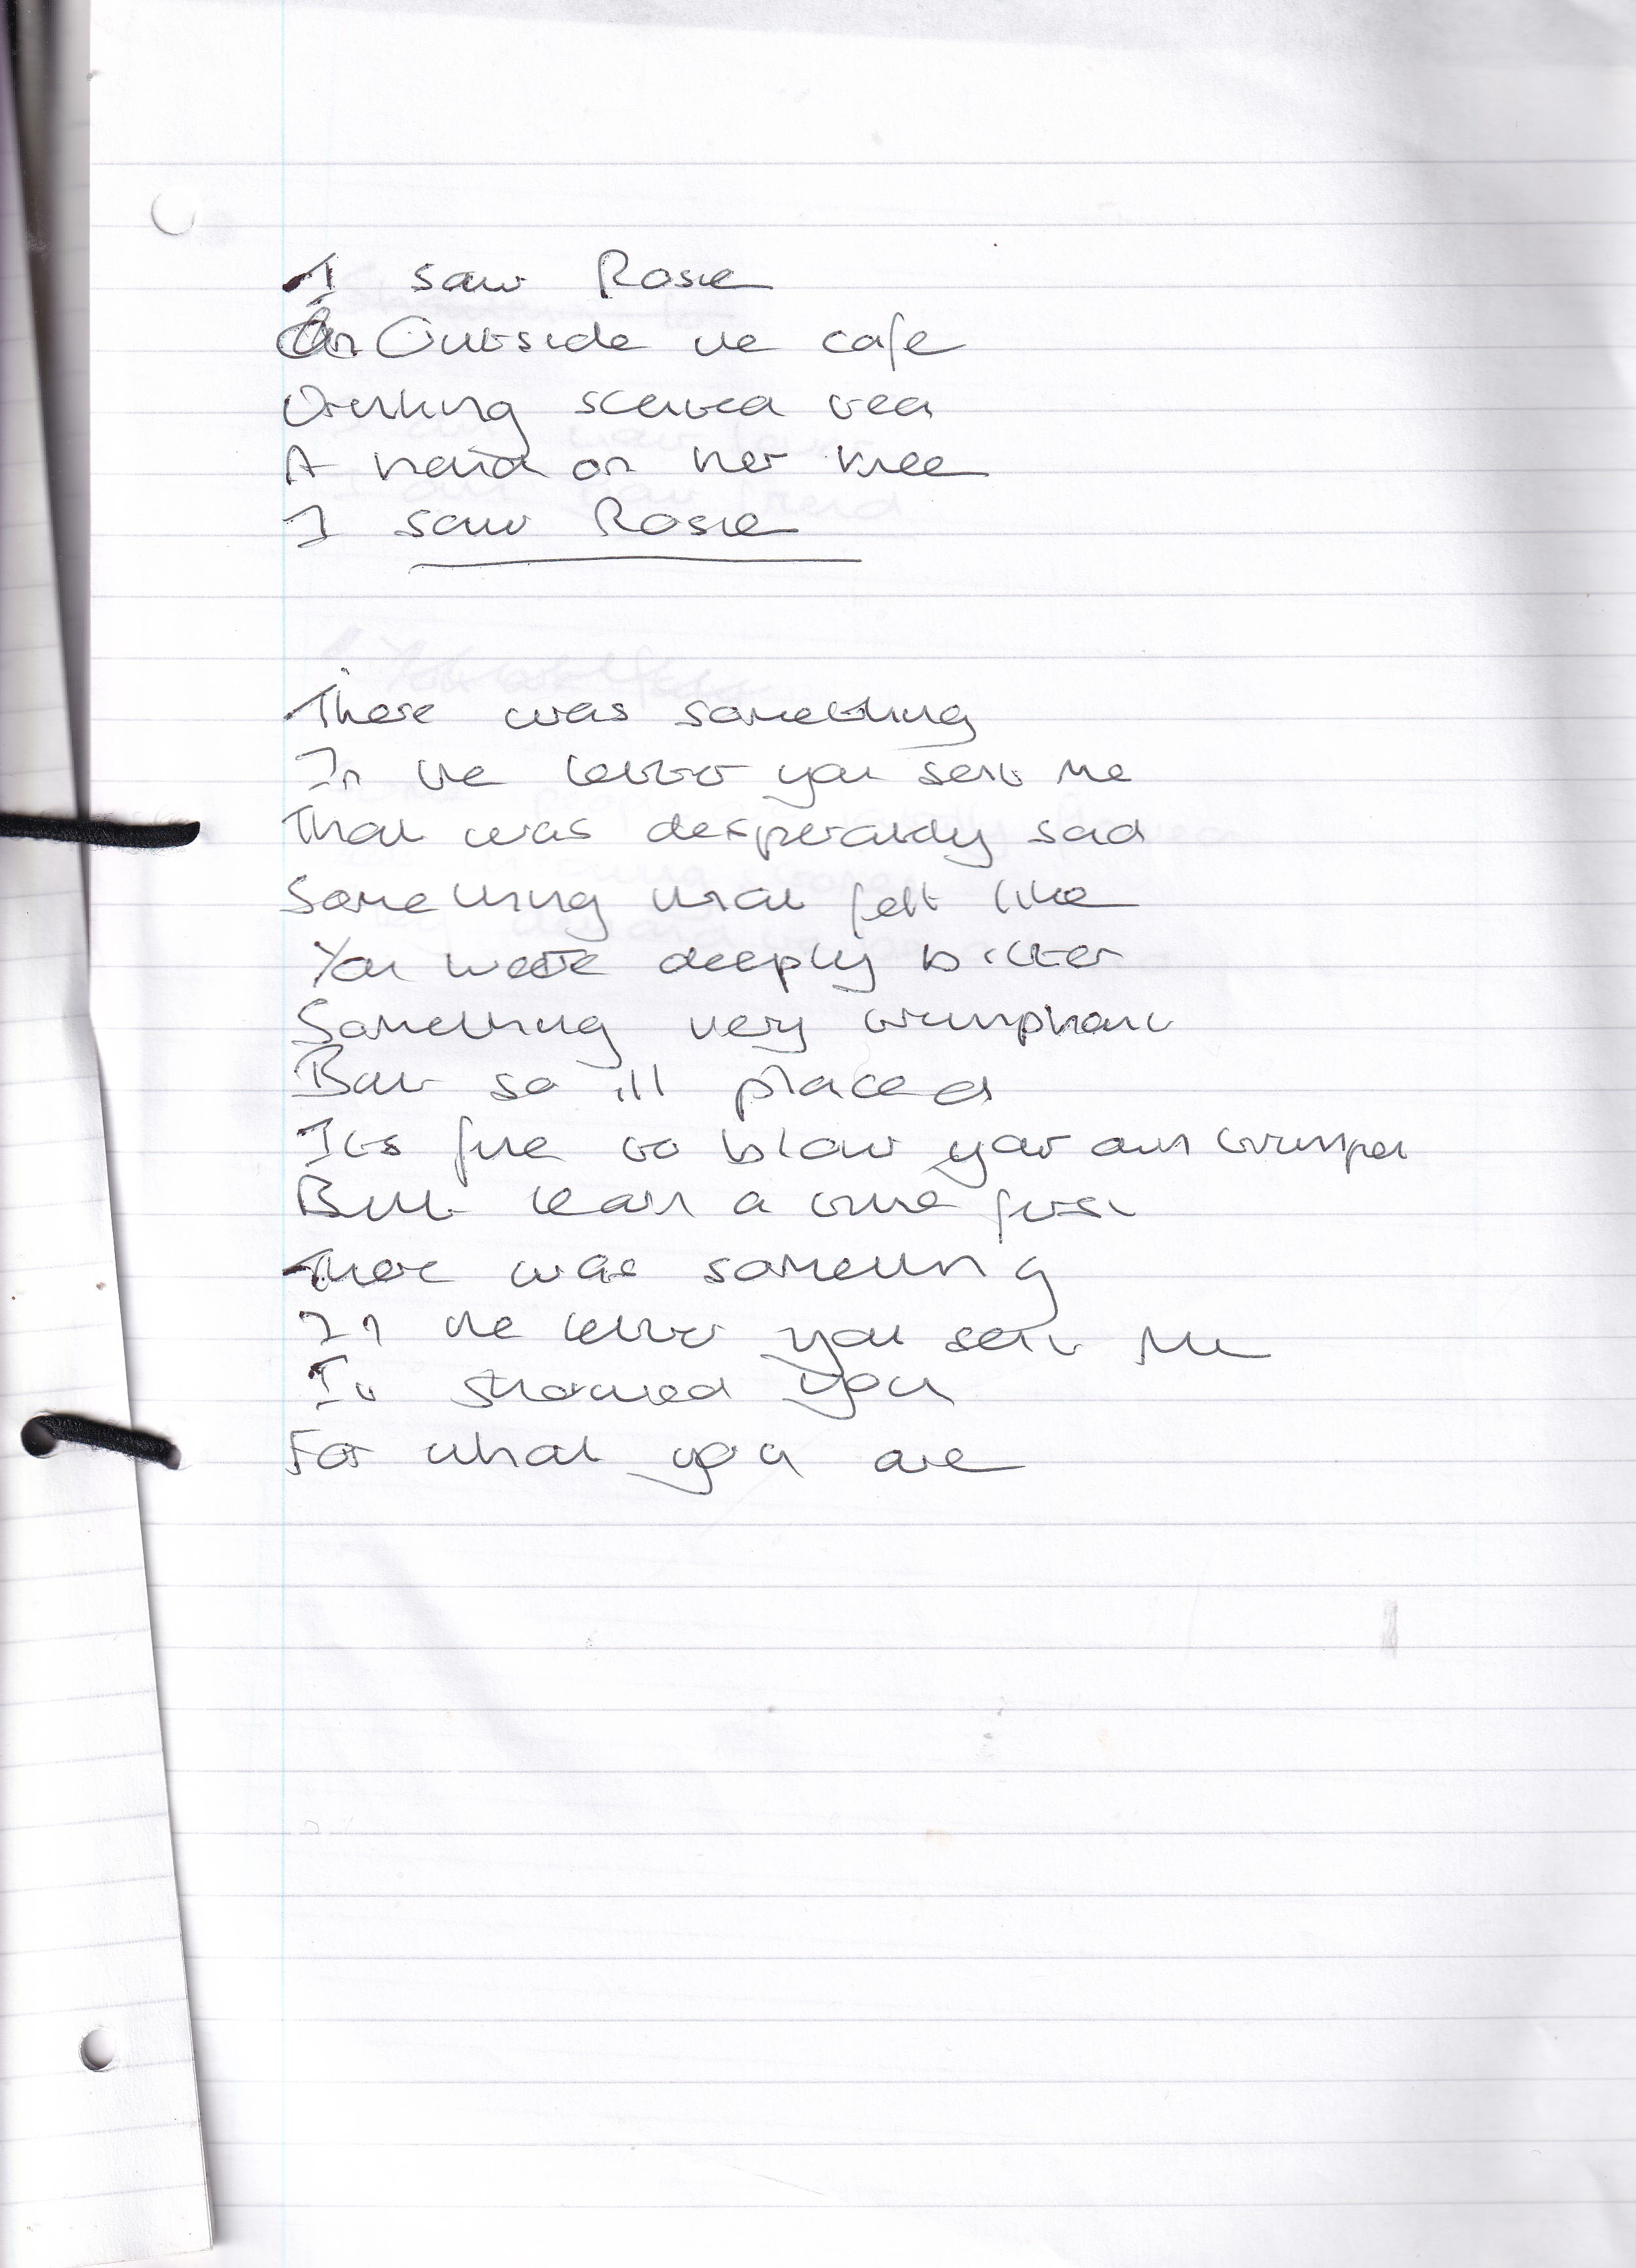 I saw Rosie
Outside the cafe
Drinking scented tea
A hand on her knee
I saw Rosie
There was something
In the letter you sent me
That was desperately sad
Something that felt like
You were deeply bitter
Something very triumphant
But so ill placed
Its fine to blow your own trumpet
But learn a tune first
There was something
In the letter you sent me
It showed you
For what you are